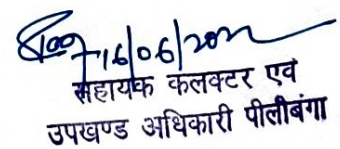 16/06/2022
सहायक कलक्टर एवं
उपखण्ड अधिकारी पीलीबंगा